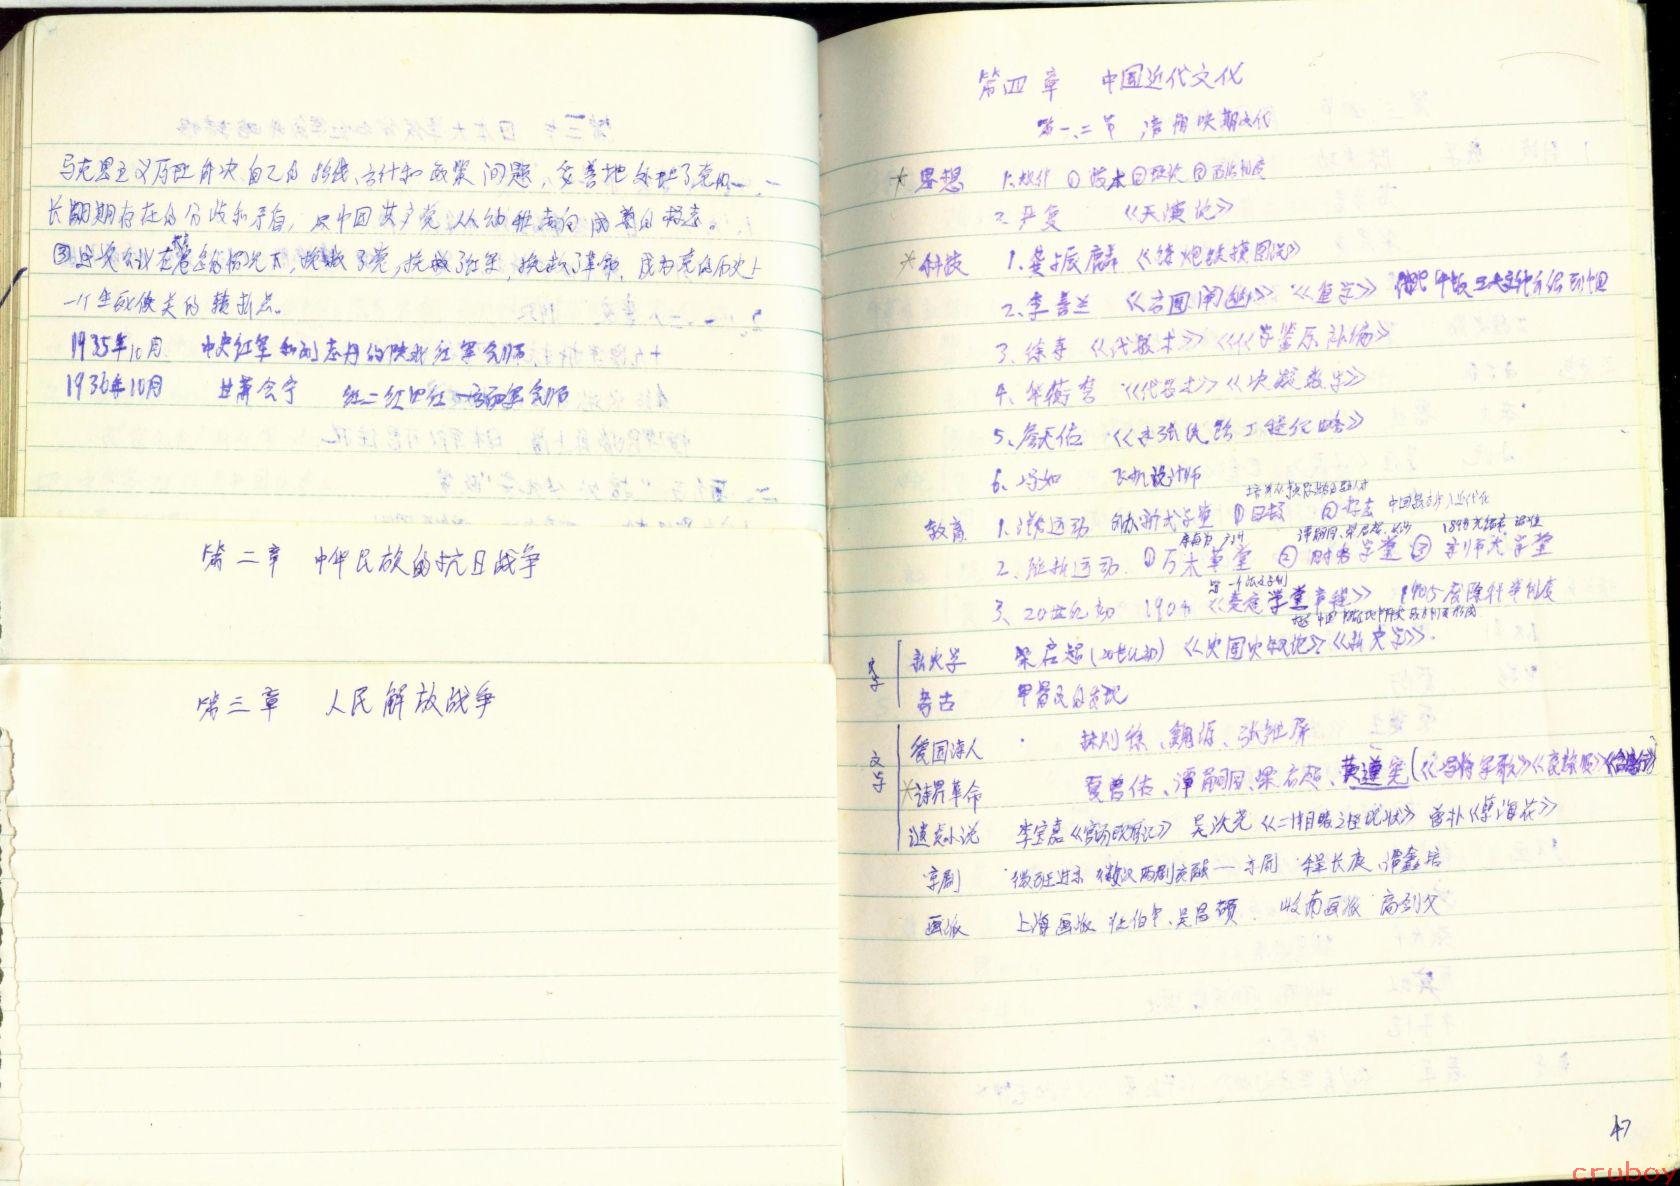 马克思主义原理解决自己的路线、方针和政策问题，妥善地处理了党内
长期存在的分歧和矛盾，是中国共产党从幼稚走向成熟的标志。
③这次会议在危急情况下，挽救了党，挽救了红军，挽救了革命，成为党的历史上
一个生死攸关的转折点。
1935年10月 中央红军和刘志丹的陕北红军会师
1936年10月 甘肃会宁 红二红四红一方面军会师
第二章 中华民族的抗日战争
第三章 人民解放战争
第四章 中国近代文化
第一、二节 清朝晚期文化
*思想 1. ①技术 ②政治 ③政治制度
2. 严复 《天演论》
*科技 1. 龚振麟 《铸炮铁模图说》
2. 李善兰 《方圆阐幽》《重学》
3. 徐寿 《代数术》《化学鉴原补编》
4. 华蘅芳 《代数术》《决疑数学》
5. 詹天佑 《京张铁路工程纪略》
6. 冯如 飞机设计师
教育 1. 洋务运动 创办新式学堂 中国教育近代化
谭嗣同、梁启超、长沙 1898
2. 维新运动 ①万木草堂 ②时务学堂 ③京师大学堂
3. 20世纪初 190 《奏定学堂章程》 1905废除科举制度
史学 新史学 梁启超(20世纪初) 《中国史叙论》《新史学》.
考古 甲骨文的发现
文学 爱国诗人 林则徐、魏源、张维屏
*诗界革命 夏曾佑、谭嗣同、梁启超、黄遵宪(《冯将军歌》《哀旅顺》《台湾行》)
谴责小说 李宝嘉《官场现形记》 吴沃尧《二十年目睹之怪现状》 曾朴《孽海花》
京剧 徽班进京 徽汉两剧交融—京剧 程长庚、谭鑫培
画派 上海画派 任伯年、吴昌硕. 岭南画派 高剑父
47
cruboy